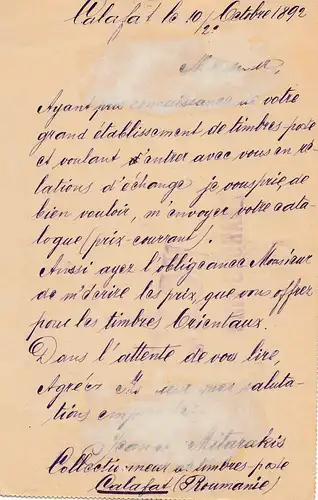 Calafăt le 10/22 Octobre 1892
Monsieur,
Ayant pris connaissance de votre
grand établissement de timbres-poste
et voulant d'entrer avec vous en ré-
lations d'échange je vous prie de
bien vouloir, m'envoyer votre cata-
logue (prix-courrant).
Ainsi ayez l'obligeance Monsieur
de m'écrire les prix, que vous offrez
pour les timbres Orientaux.
Dans l'attente de vous lire,
Agréez mes saluta-
tions
Mitarakis
Collectionneur de timbres-poste
Calafat (Roumanie)